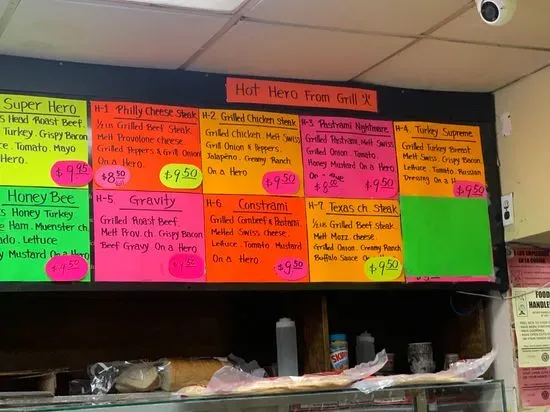 Hot Hero From Grill
Super Hero
Head Roast Beef
Turkey. Crispy Bacon
Tomato. Mayo
Hero.
$9.95
H-1 Philly Cheese Steak
1/2 LB Grilled Beef Steak
Melt Provolone cheese
Grilled Peppers & Grill Onion
On a Hero
$8.50
$9.50
H-2 Grilled Chicken Steak
Grilled Chicken. Melt Swiss
Grill Onion & Peppers.
Jalapeno. Creamy Ranch
On a Hero
$9.50
H-3 Pastrami Nightmare
Grilled Pastrami. Melt Swiss
Grilled Onion. Tomato.
Honey Mustard On a Hero
$9.50
H-4 Turkey Supreme
Grilled Turkey Breast
Melt Swiss. Crispy Bacon
Lettuce. Tomato. Russian
Dressing On a Hero
$9.50
Honey Bee
Honey Turkey
Ham. Muenster ch.
Lettuce
Mustard On a Hero
$9.50
H-5 Gravity
Grilled Roast Beef
Melt Prov. ch. Crispy Bacon
Beef Gravy On a Hero
$9.50
H-6 Constrami
Grilled Cornbeef & Pastrami
Melted Swiss cheese.
Lettuce Tomato Mustard
On a Hero
$9.50
H-7 Texas ch. Steak
1/2 LB Grilled Beef Steak
Melt Mozz. cheese
Grilled Onion. Creamy Ranch
Buffalo Sauce On a Hero
$9.50
FOOD
HANDLE